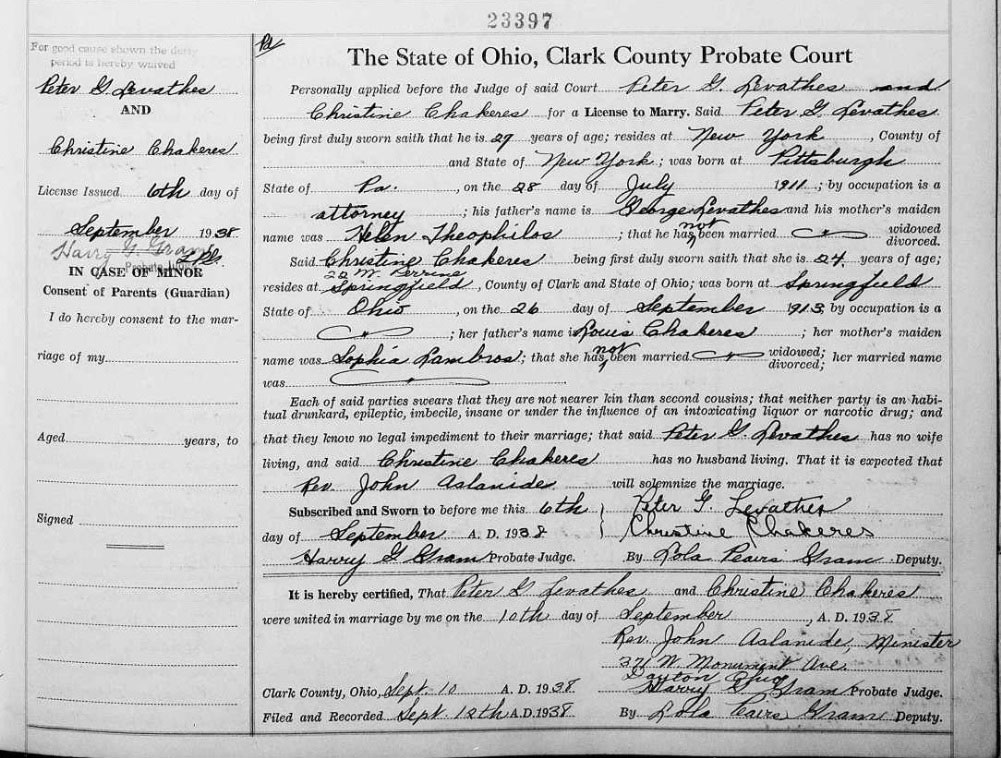 23397
For good cause shown the
period is hereby waived
Peter G. Levathes
AND
Christine Chakeres
License Issued 6th day of
September 1938
Harry G. Gram
Probate Judge
IN CASE OF MINOR
Consent of Parents (Guardian)
I do hereby consent to the mar-
riage of my
Aged years, to
Signed
Pd
The State of Ohio, Clark County Probate Court
Personally applied before the Judge of said Court Peter G. Levathes and
Christine Chakeres for a License to Marry. Said Peter G. Levathes
being first duly sworn saith that he is 27 years of age; resides at New York, County of
and State of New York; was born at Pittsburgh
State of Pa., on the 28 day of July 1911; by occupation is a
attorney; his father's name is George Levathes and his mother's maiden
name was Helen Theophilos; that he has not been married widowed
divorced.
Said Christine Chakeres being first duly sworn saith that she is 24 years of age;
22 W. Perrine
resides at Springfield, County of Clark and State of Ohio; was born at Springfield
State of Ohio, on the 26 day of September 1913; by occupation is a
; her father's name is Louis Chakeres; her mother's maiden
name was Sophia Lambros; that she has not been married widowed; her married name
divorced;
was
Each of said parties swears that they are not nearer kin than second cousins; that neither party is an habi-
tual drunkard, epileptic, imbecile, insane or under the influence of an intoxicating liquor or narcotic drug; and
that they know no legal impediment to their marriage; that said Peter G. Levathes has no wife
living, and said Christine Chakeres has no husband living. That it is expected that
Rev. John Aslanide will solemnize the marriage.
Subscribed and Sworn to before me this 6th Peter G. Levathes
day of September A. D. 1938 Christine Chakeres
Harry G Gram Probate Judge. By Lola Pears Gram Deputy.
It is hereby certified, That Peter G Levathes and Christine Chakeres
were united in marriage by me on the 10th day of September, A. D. 1938
Rev. John Aslanide, Minister
371 W. Monument Ave.
Dayton Ohio
Clark County, Ohio, Sept. 10 A. D. 1938 Harry G Gram Probate Judge.
Filed and Recorded Sept. 12th A.D. 1938 By Lola Pears Gram Deputy.